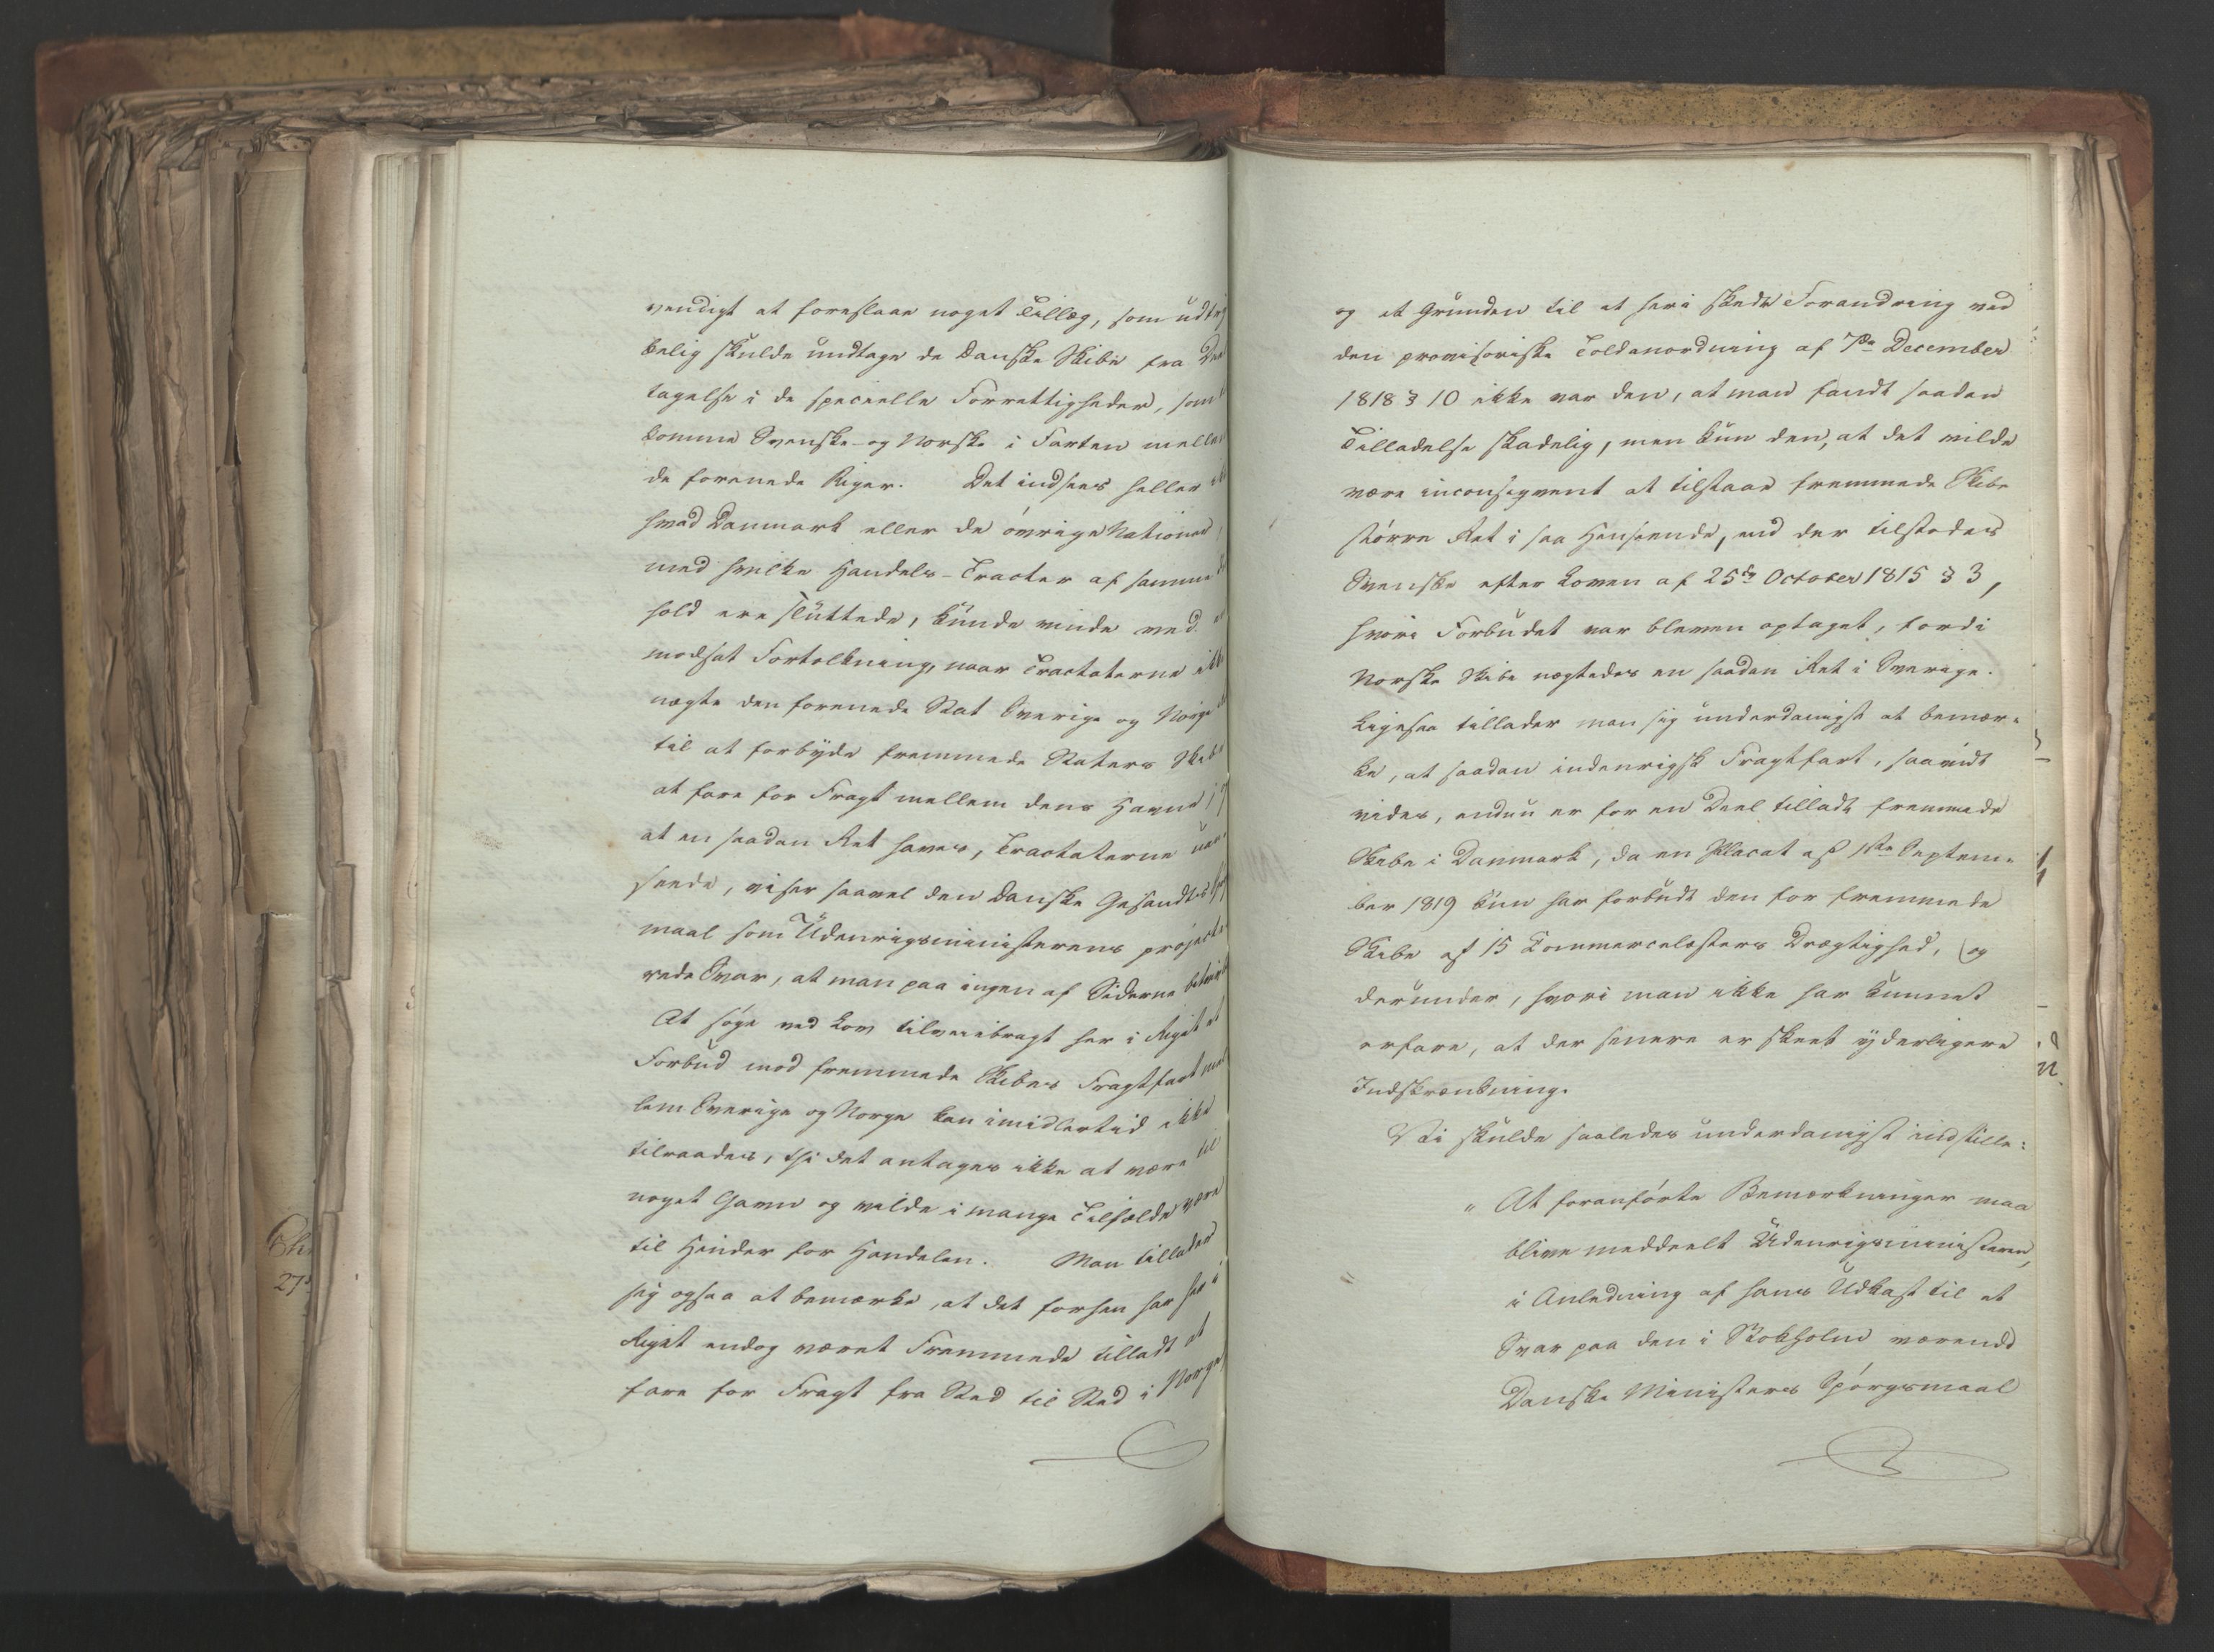 vendigt at foreslaae noget Tillæg, som udtryk
kelig skulde undtage de Danske Skibe fra Deel
tagelse i de specielle Forrettigheder, som
komme Svenske og Norske i Farten mellem
de forenede Riger. Det indsees heller ikke
hvad Danmark eller de øvrige Nationer,
med hvilke Handels-Tracter af samme
hold ere sluttede, kunde vinde ved
modsat Fortolkning, naar Tractaterne ikke
nægte den forenede Stat Sverige og Norge
til at forbyde fremmede Staters Skibe
at fare for Fragt mellem dens Havne;
at en saadan Ret haves, Tractaterne uan-
seede, viser saavel den Danske Gesandts Spørgs
maal som Udenrigsministerens projecte
rede Svar, at man paa ingen af Siderne betvivle
At søge ved Lov tilveiebragt her i Riget et
Forbud mod fremmede Skibes Fragtfart mel
lem Sverige og Norge kan imidlertid ikke
tilraades, thi det antages ikke at være til
noget Gavn og vilde i mange Tilfælde være
til Hinder for Handelen. Man tillader
sig ogsaa at bemærke, at det forhen har her i
Riget endog været Fremmede tilladt at
fare for Fragt fra Sted til Sted i Norge,
og at Grunden til at heri skede Forandring ved
den provisoriske Toldanordning af 7de December
1818 § 10 ikke var den, at man fandt saadan
Tilladelse skadelig, men kun den, at det vilde
være inconseqvent at tilstaae fremmede Skibe
større Ret i saa Henseende, end der tilstodes
Svenske efter Loven af 25de October 1815 § 3,
hvori Forbudet var bleven optaget, fordi
Norske Skibe nægtedes en saadan Ret i Sverige.
Ligesaa tillader man sig underdanigst at bemær-
ke, at saadan indenrigsk Fragtfart, saavidt
vides, endnu er for en Deel tilladt fremmede
Skibe i Danmark, da en Placat af 1ste Septem-
ber 1819 kun har forbudt den for fremmede
Skibe af 15 Commercelæsters Drægtighed, og
derunder, hvori man ikke har kunnet
erfare, at der senere er skeet yderligere
Indskrænkning.
Vi skulde saaledes underdanigst indstille:
" At foranførte Bemærkninger maa
blive meddeelt Udenrigsministeren,
i Anledning af hans Udkast til et
Svar paa den i Stokholm værende
Danske Ministers Spørgsmaal